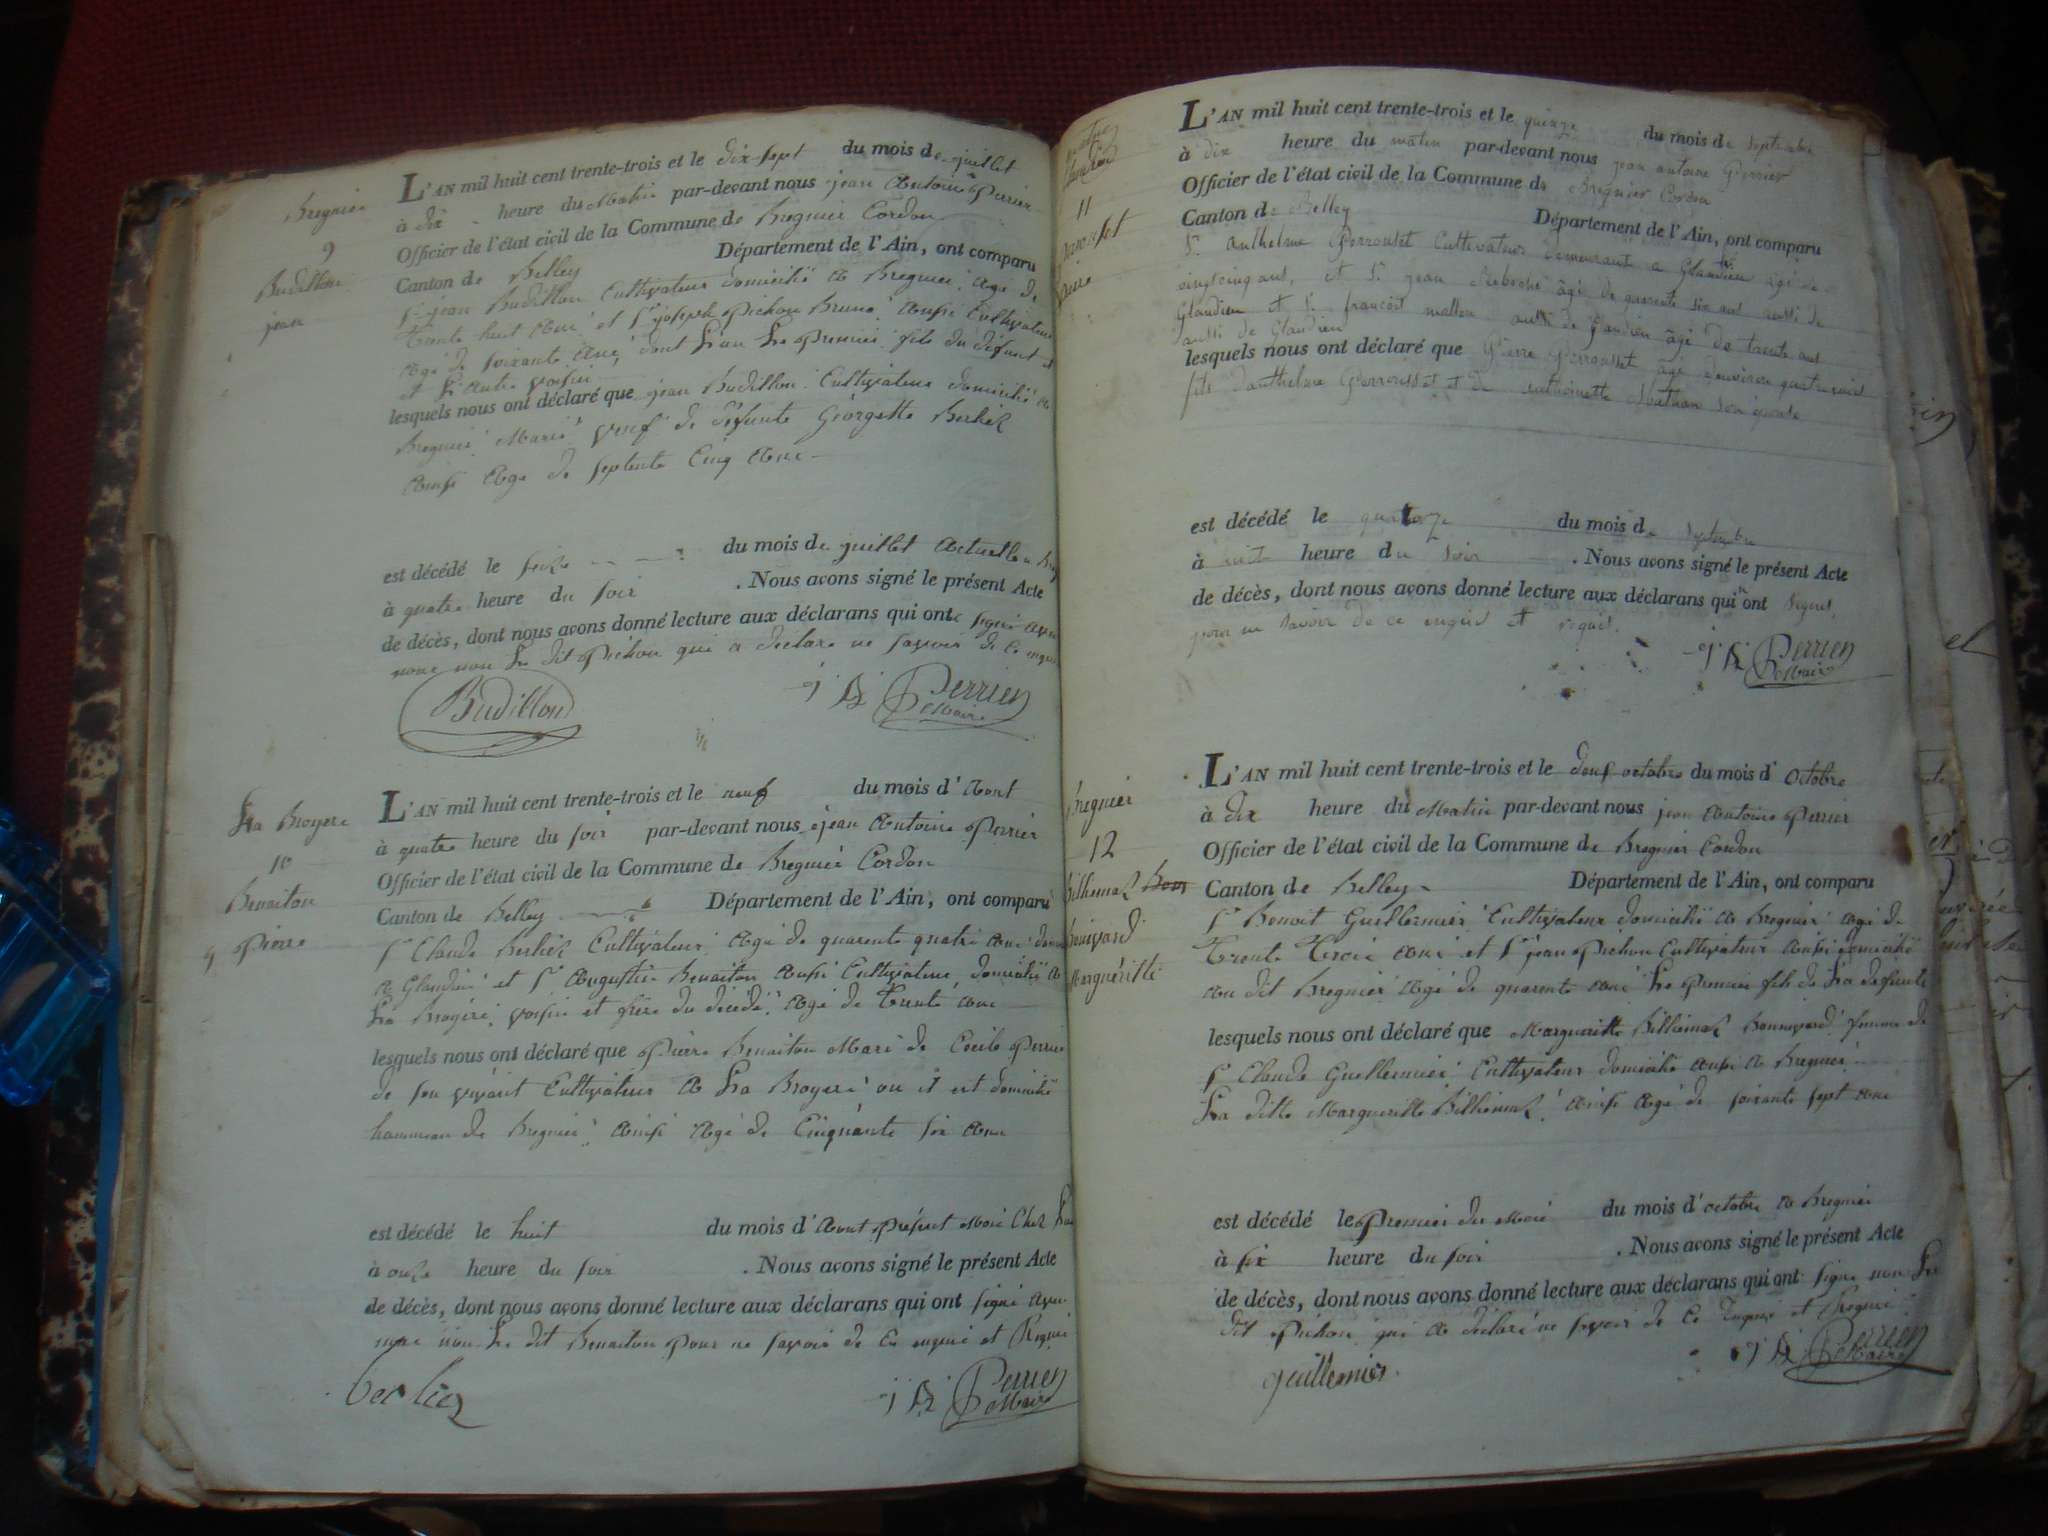 Bregnier
9
Budillon
jean
L'AN mil huit cent trente-trois et le dix-sept du mois de juillet
à dix heure du Matin par-devant nous jean Antoine Perrier
Officier de l'état civil de la Commune de Bregnier Cordon
Canton de Belley Département de l'Ain, ont comparu
Sr jean Budillon Cultivateur domicilié a Bregnier agé de
Trente huit Ans et Sr joseph Pichon Bruno Aussi Cultivateur
Agé de soixante Ans, dont L'un Le Premier fils du défunt
et L'autre voisin
lesquels nous ont déclaré que jean Budillon Cultivateur domicilié a
Bregnier Marié veuf de défunte Géorgette Berlié
Aussi Agé de septente Cinq Ans
est décédé le seize du mois de juillet Actuelle a
à quatre heure du soir . Nous avons signé le présent Acte
de décès, dont nous avons donné lecture aux déclarans qui ont signé avec
nous non Le dit Pichon qui a declare ne savoir de Ce enquis
Budillon J. A. Perrier Maire
La Broyere
10
Benaiton
Pierre
L'AN mil huit cent trente-trois et le neuf du mois d'Aout
à quatre heure du soir par-devant nous jean Antoine Perrier
Officier de l'état civil de la Commune de Bregnier Cordon
Canton de Belley Département de l'Ain, ont comparu
Sr Claude Berlier Cultivateur Agé de quarente quatre ans
a Glandieu et Sr Augustin Benaiton Aussi Cultivateur domicilié a
La Broyére, voisin et frère du décédé, Agé de Trente Ans
lesquels nous ont déclaré que Pierre Benaiton Mari de Cecile Perrier
de son vivant Cultivateur a La Broyere ou il est domicilié
hammeau de Bregnier Aussi Agé de Cinquante six Ans
est décédé le huit du mois d'Aout Présent Mois Chez Lui
à onze heure du soir . Nous avons signé le présent Acte
de décès, dont nous avons donné lecture aux déclarans qui ont signé avec
nous non Le dit Benaiton Pour ne savoir de Ce enquis et Requis
berlier J. A. Perrier Maire
11
L'AN mil huit cent trente-trois et le quinze du mois de Septembre
à dix heure du matin par-devant nous jean antoine Perrier
Officier de l'état civil de la Commune de Bregnier Cordon
Canton de Belley Département de l'Ain, ont comparu
Sr anthelme Perrousset Cultivateur demeurant a Glandieu âgé de
vingt cinq ans, et Sr jean Reboche âgé de quarente six ans aussi de
Glandieu et Sr francois mallen aussi de Glandieu âgé de trente ans
aussi de Glandieu
lesquels nous ont déclaré que Pierre Perrousset âgé d'environ quatre mois
fils d'anthelme Perrousset et de anthoinette Mathan son épouse
est décédé le quatorze du mois de Septembre
à huit heure du soir . Nous avons signé le présent Acte
de décès, dont nous avons donné lecture aux déclarans qui n'ont signés
pour ne savoir de ce enquis et requis.
J. A. Perrier Maire
Bregnier
12
Bilhemaz
Bonivard
Marguéritte
L'AN mil huit cent trente-trois et le deuf octobre du mois d'Octobre
à dix heure du Matin par-devant nous jean Antoine Perrier
Officier de l'état civil de la Commune de Bregnier Cordon
Canton de Belley Département de l'Ain, ont comparu
Sr Benoit Guellermier Cultivateur domicilié a Bregnier agé de
Trente Trois Ans et Sr jean Pichon Cultivateur Aussi domicilié
Au dit Bregnier Agé de quarente Ans Le Premier fils de La defunte
lesquels nous ont déclaré que Margueritte Billiémaz Bonnivard femme de
Sr Claude Guellermier Cultivateur domicilié Aussi a Bregnier
La ditte Margueritte Bilhiemaz, Aussi Agé de soixante sept Ans
est décédé le Premier du Mois du mois d'octobre a Bregnier
à six heure du soir . Nous avons signé le présent Acte
de décès, dont nous avons donné lecture aux déclarans qui ont signé non Le
dit Pichon qui a déclaré ne savoir de Ce Enquis et Requis
guillermier J. A. Perrier Maire